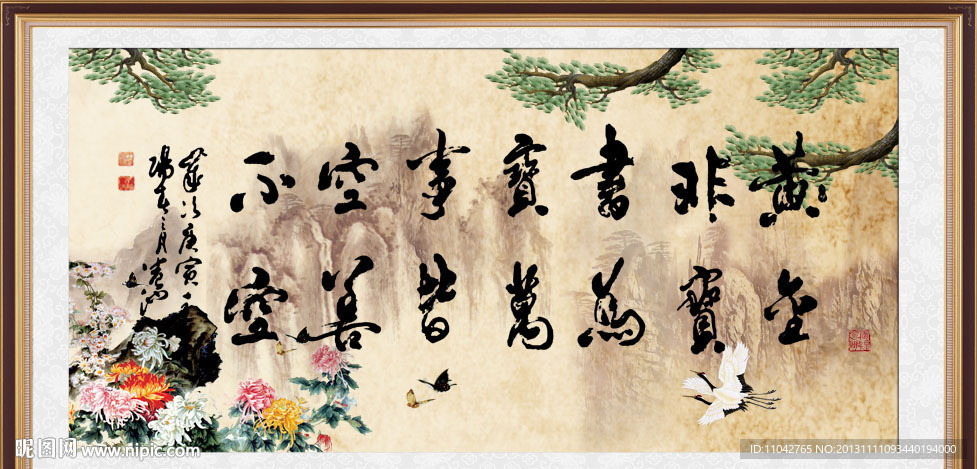 黄金
非寶
書為
寶萬
事皆
空善
不空
歲次庚寅年
陽春三月
昵图网 www.nipic.com
ID:11042765 NO:20131111093440194000